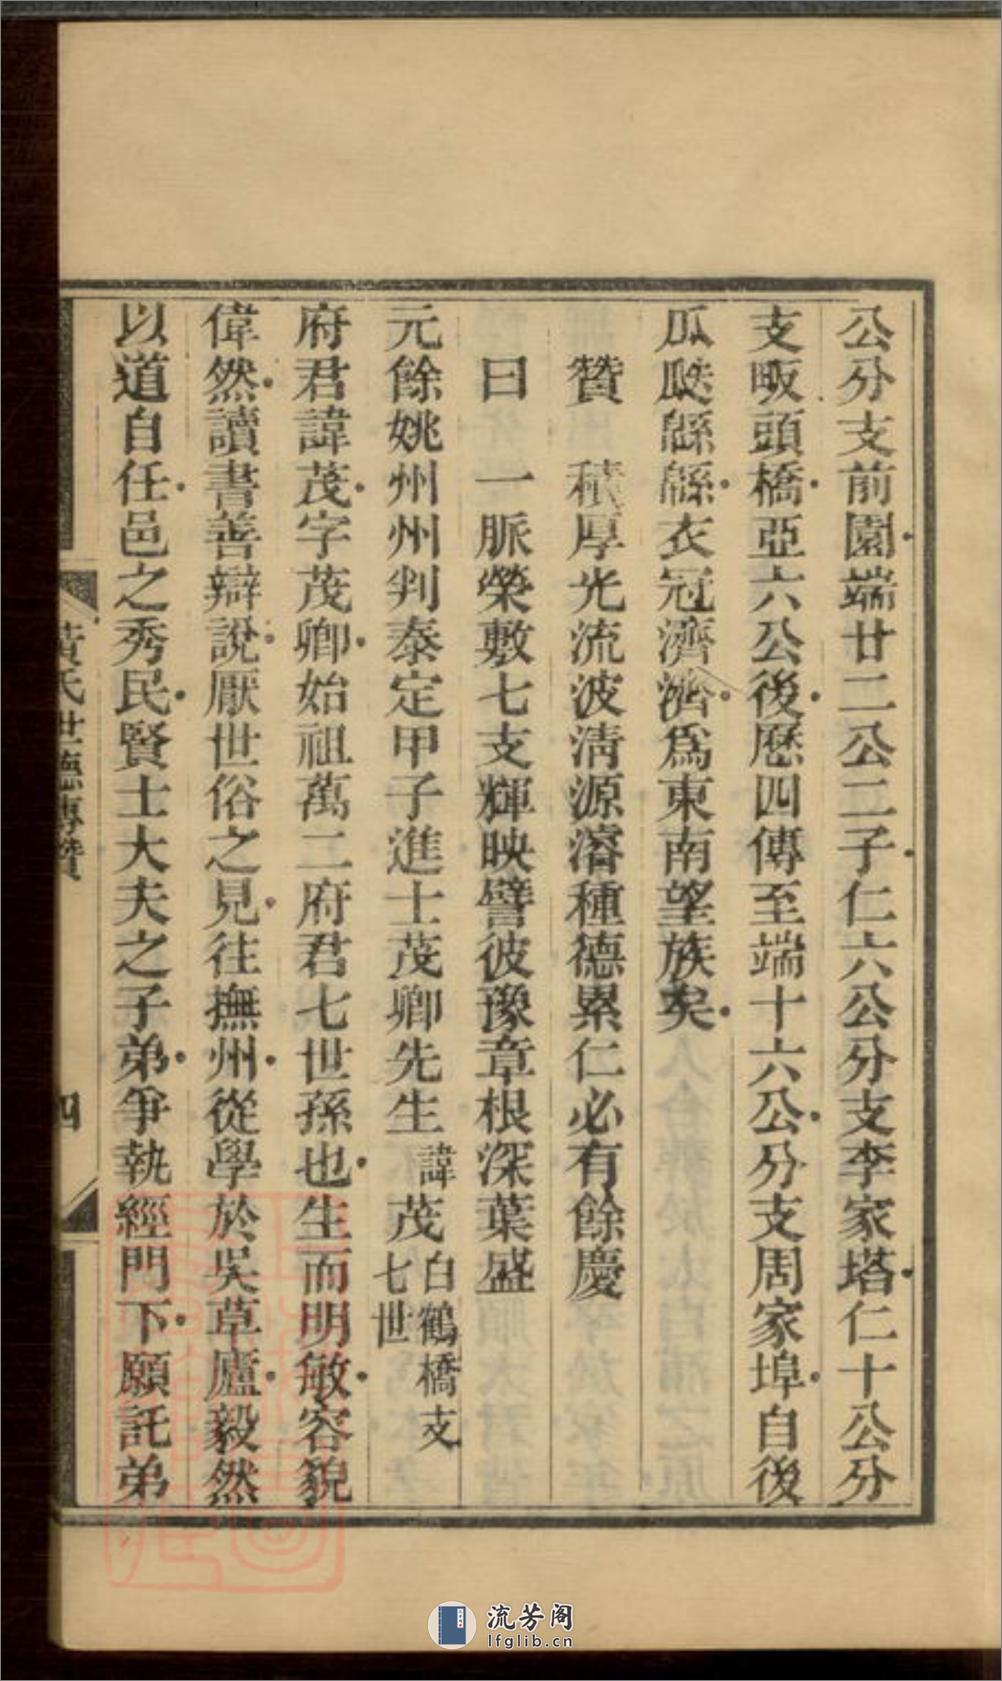 公分支前園端廿二公二子仁六公分支李家塔仁十公分
支畈頭橋亞六公後歷四傳至端十六公分支周家埠自後
瓜瓞緜緜衣冠濟濟爲東南望族矣
贊 積厚光流波淸源濬種德累仁必有餘慶
曰 一脈榮敷七支輝映譬彼豫章根深葉盛
元餘姚州州判泰定甲子進士茂卿先生諱茂白鶴橋支七世
府君諱茂字茂卿始祖萬二府君七世孫也生而明敏容貌
偉然讀書善辯說厭世俗之見往撫州從學於吳草廬毅然
以道自任邑之秀民賢士大夫之子弟爭執經門下願託弟
黃氏世德傳贊
四
流芳阁
lfglib.cn